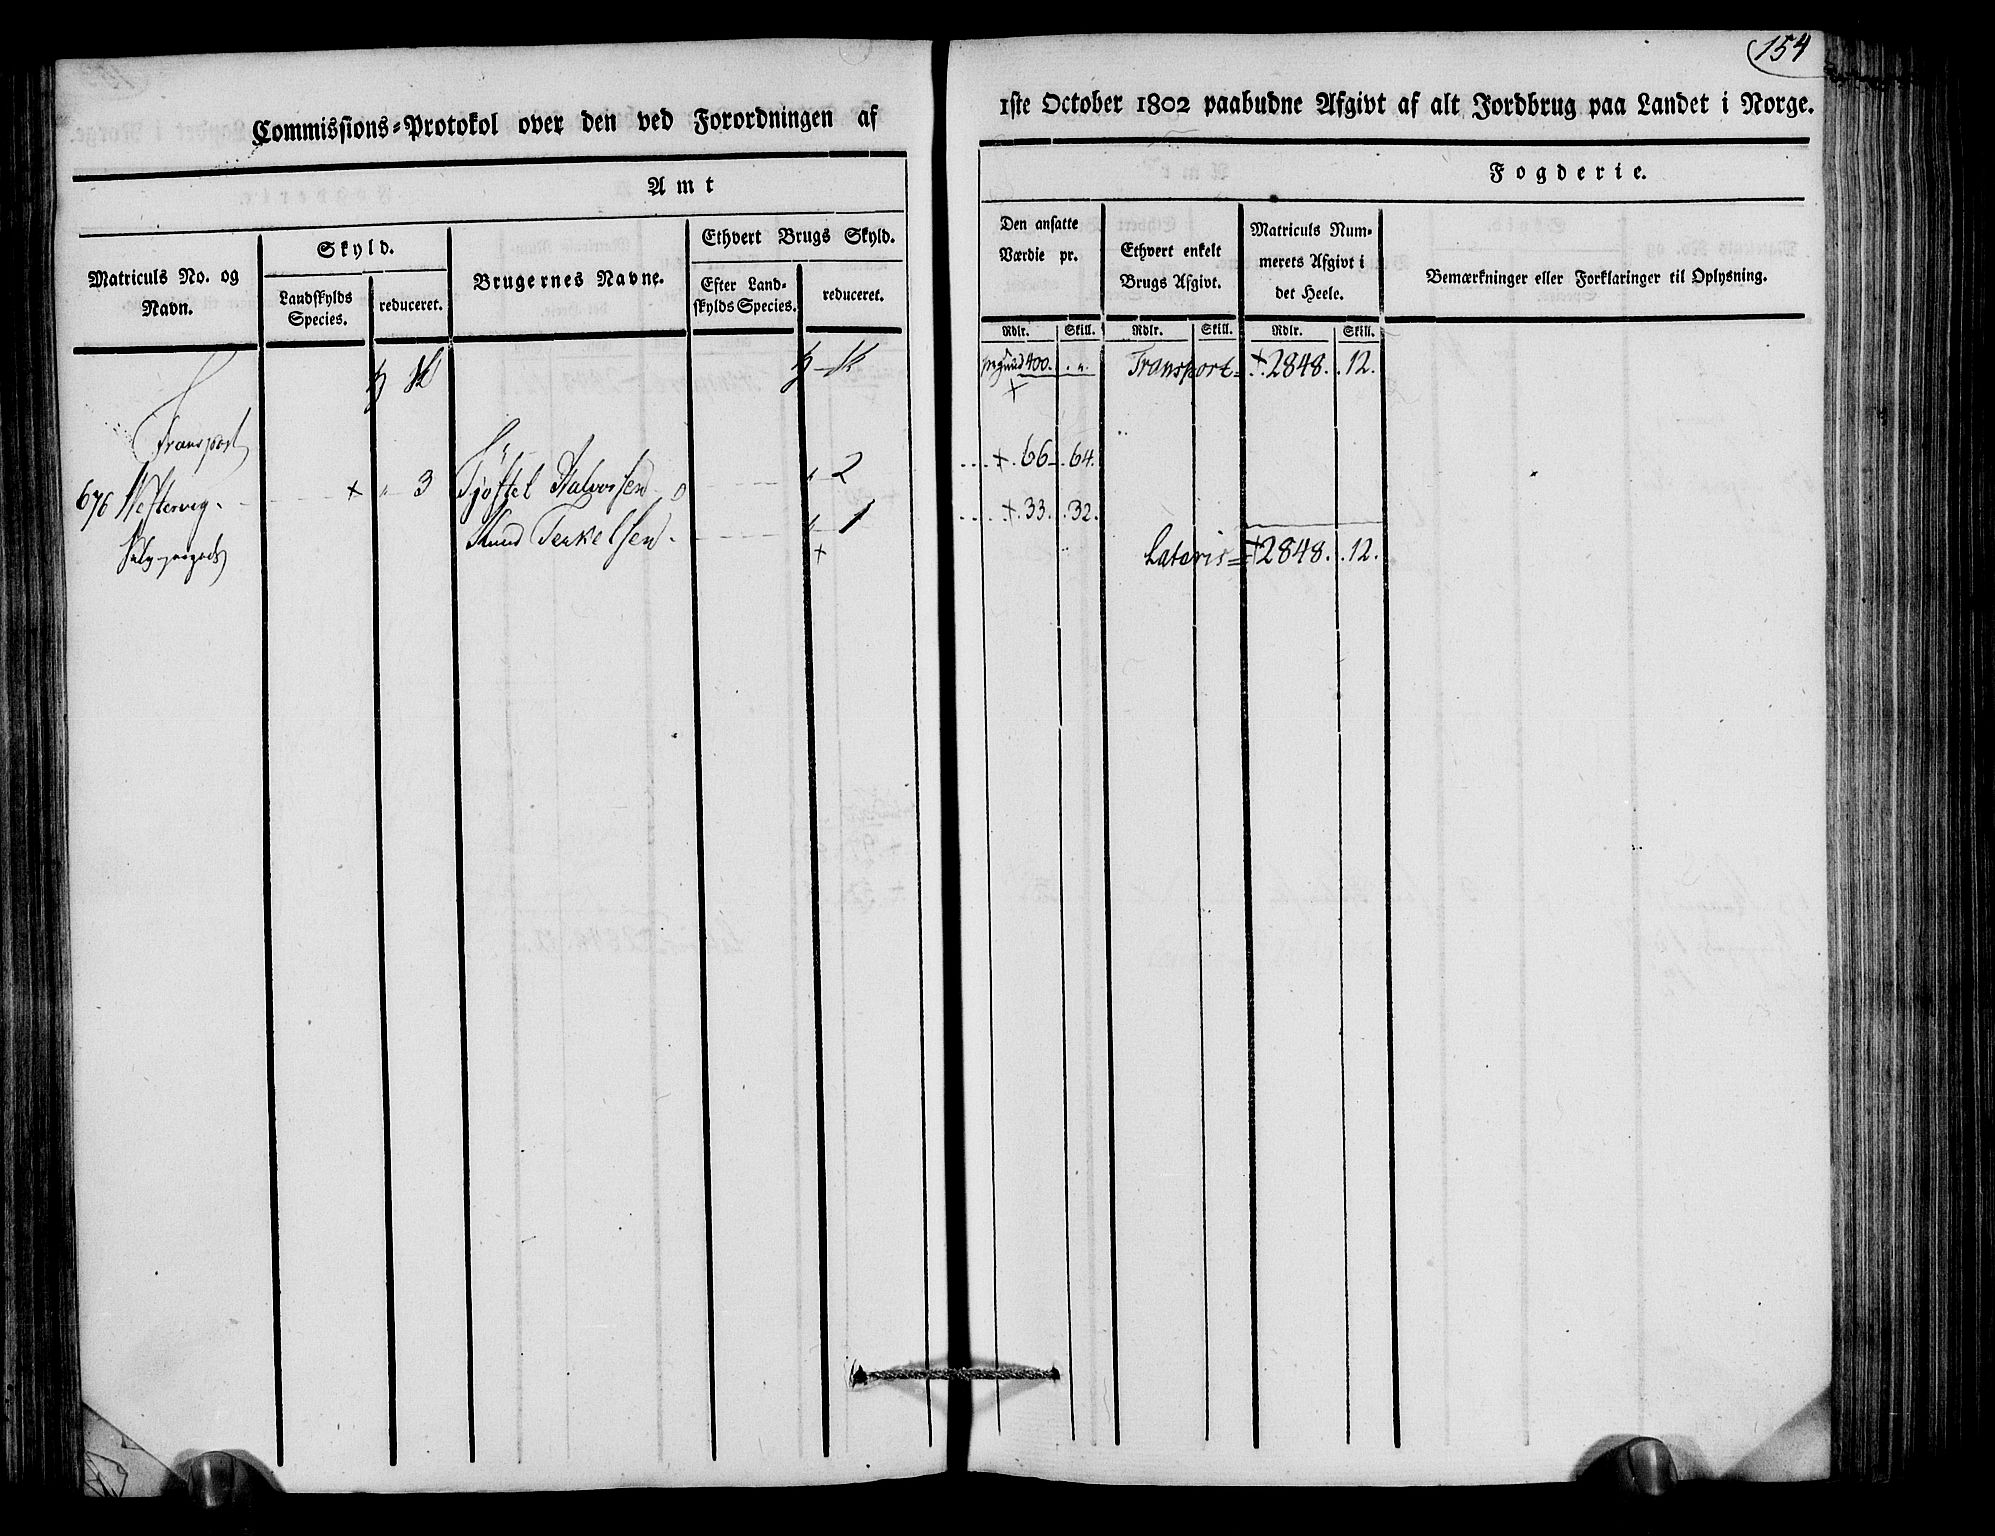 154
Commissions-Protokol over den ved Forordningen af
1ste October 1802 paabudne Afgivt af alt Jordbrug paa Landet i Norge.
Amt
Fogderie.
Matriculs No. og Navn.
Skyld.
Landskylds Species.
reduceret.
Brugernes Navne.
Ethvert Brugs Skyld.
Efter Landskylds Species.
reduceret.
Den ansatte Værdie pr.
Ethvert enkelt Brugs Afgivt.
Matriculs Nummerets Afgivt i det Heele.
Bemærkninger eller Forklaringer til Oplysning.
Rdlr. Skill. Rdlr. Skill. Rdlr. Skill.
400. Transport = 2848. 12.
Transport
676 3 Halvorsen 2 66 64.
Knud Terkelsen 1 33. 32.
Lateris = 2848. 12.